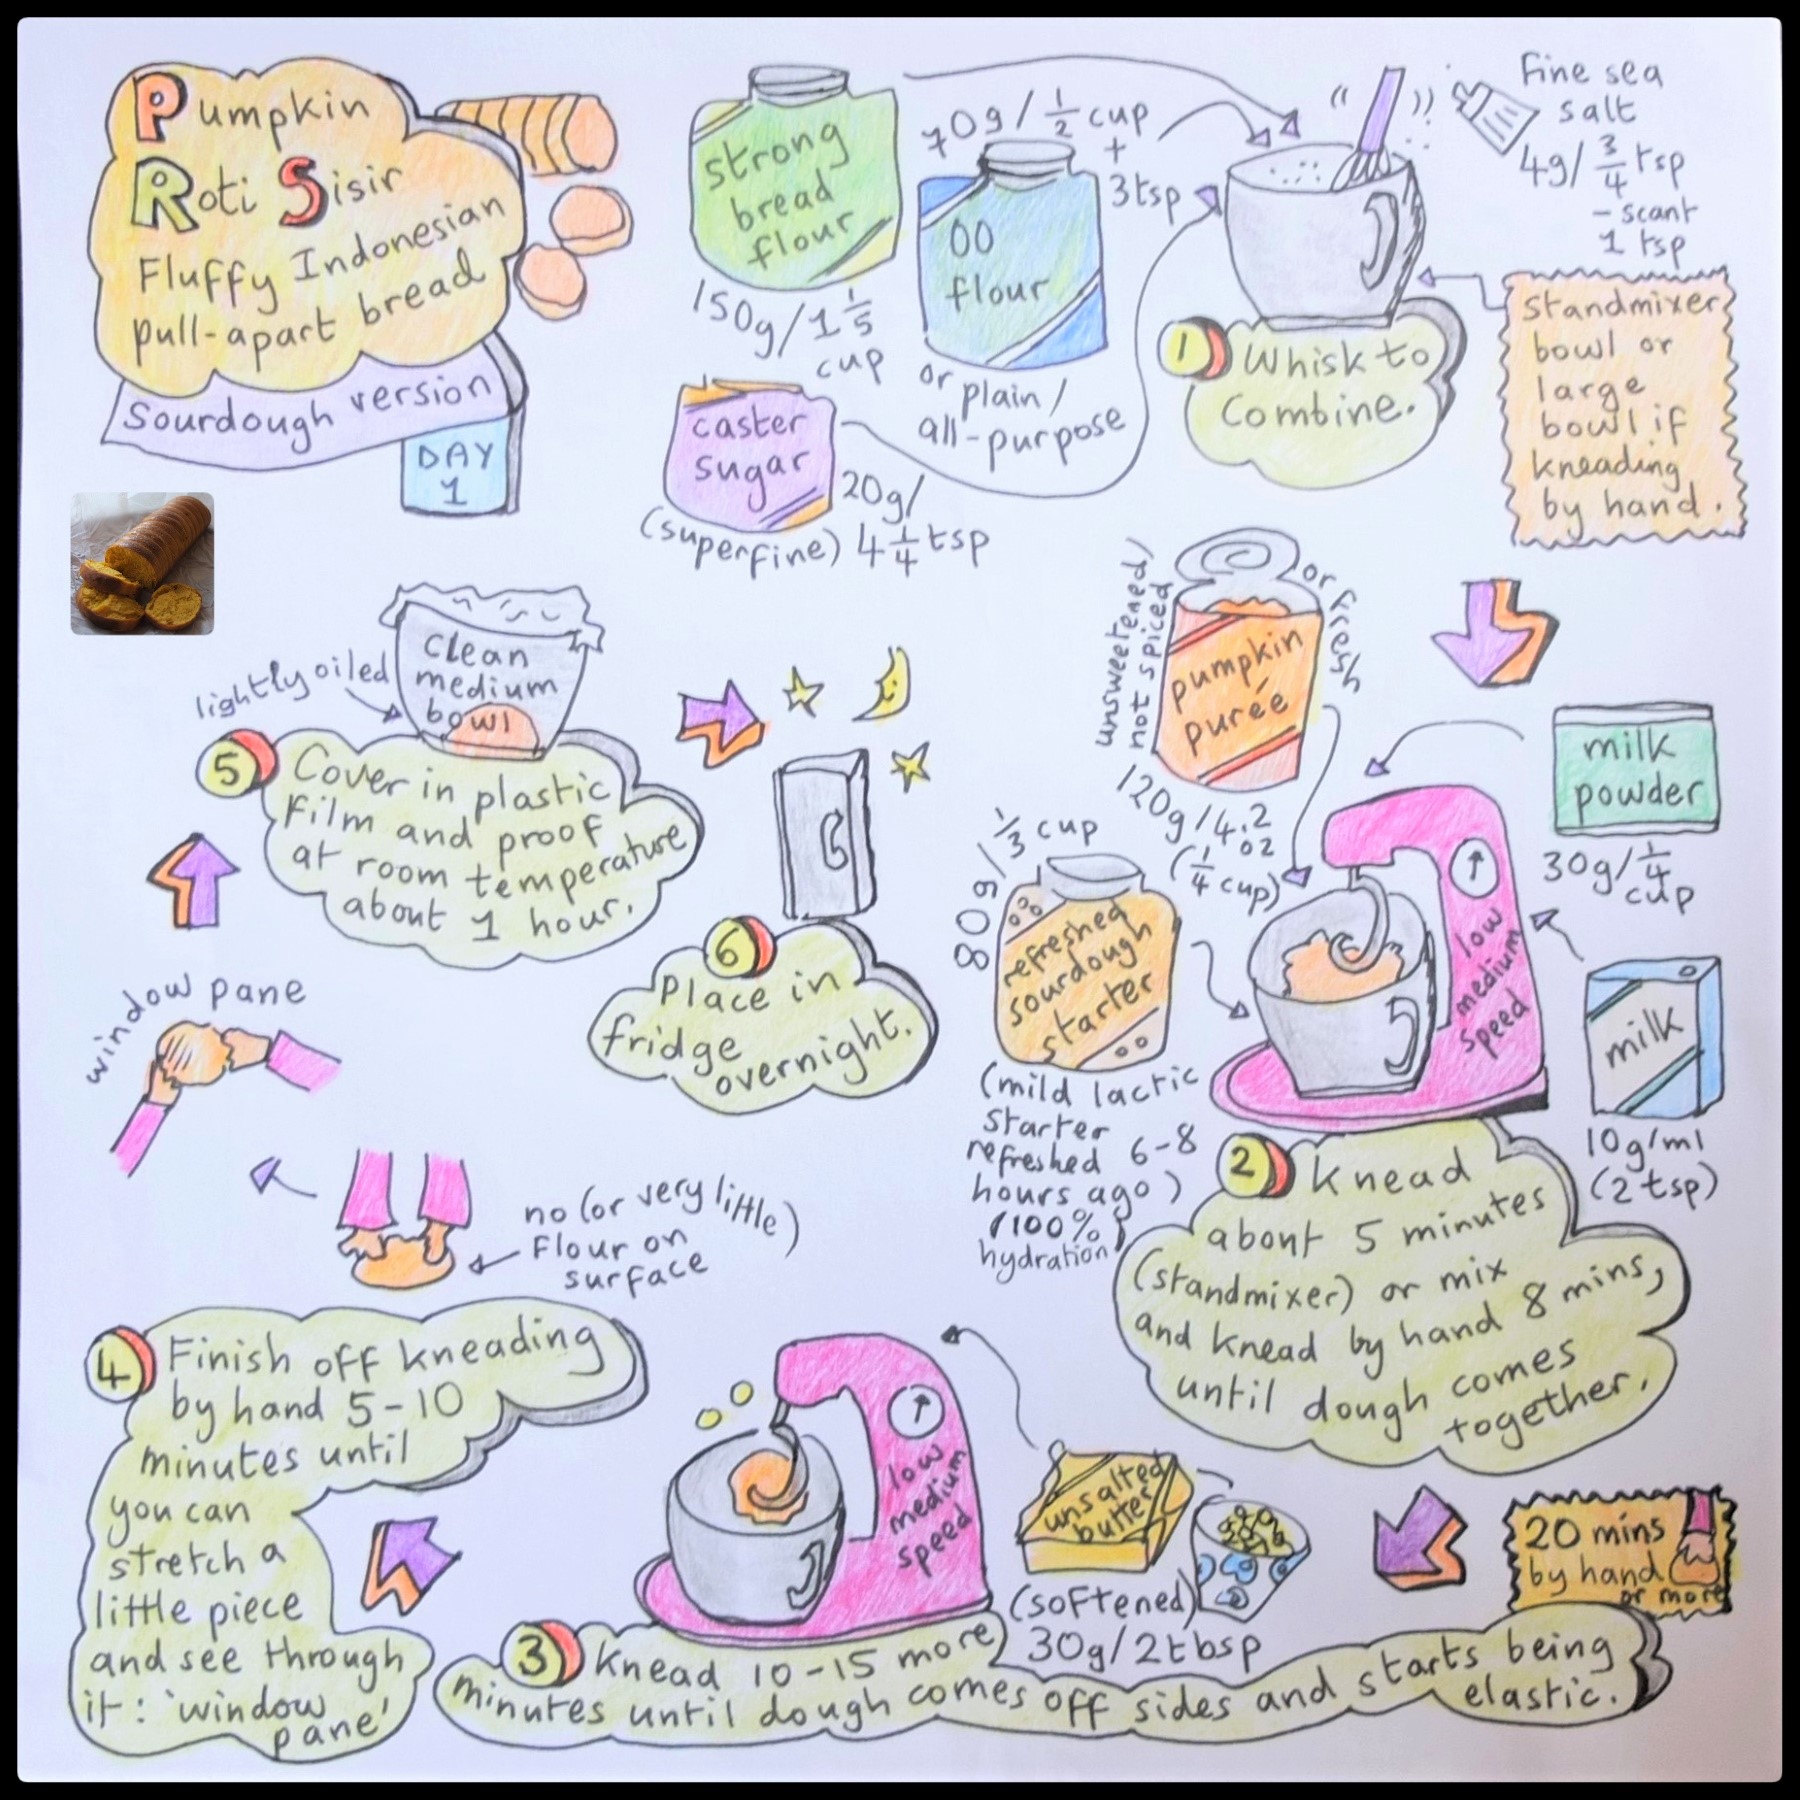 Pumpkin
Roti Sisir
Fluffy Indonesian
pull-apart bread
Sourdough version
DAY
1
strong
bread
flour
150g/1 1/5
cup
70g/ 1/2 cup
+
3tsp
00
flour
or plain/
all-purpose
caster
sugar
(superfine)
20g/
4 1/4 tsp
Fine sea
salt
4g/ 3/4 tsp
- scant
1 tsp
1 Whisk to
combine.
standmixer
bowl or
large
bowl if
kneading
by hand.
unsweetened/
not spiced
or fresh
pumpkin
purée
120g/4.2
oz
(1/4 cup)
milk
powder
30g/ 1/4
cup
80g/ 1/3 cup
refreshed
sourdough
starter
(mild lactic
starter
refreshed 6-8
hours ago)
(100%
hydration)
low
medium
speed
milk
10g/ml
(2 tsp)
2 Knead
about 5 minutes
(standmixer) or mix
and knead by hand 8 mins,
until dough comes
together.
20 mins
by hand
or more
unsalted
butter
(softened)
30g/2tbsp
low
medium
speed
3 Knead 10-15 more
minutes until dough comes off sides and starts being
elastic.
4 Finish off kneading
by hand 5-10
minutes until
you can
stretch a
little piece
and see through
it: 'window
pane'
no (or very little)
flour on
surface
window pane
lightly oiled
clean
medium
bowl
5 Cover in plastic
film and proof
at room temperature
about 1 hour.
6
Place in
fridge
overnight.